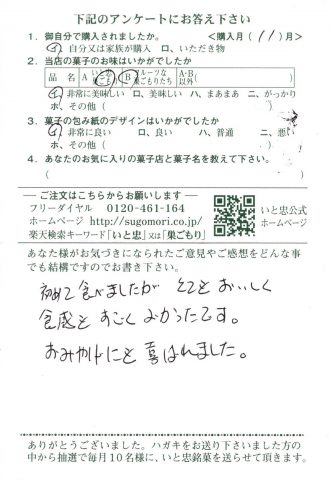 下記のアンケートにお答え下さい
1. 御自分で購入されましたか。 <購入月(11)月>
イ、自分又は家族が購入 ロ、いただき物
2. 当店の菓子のお味はいかがでしたか
品名 A いとこごも B フルーツな巣ごもりたち A・B以外( )
イ、非常に美味しい ロ、美味しい ハ、まあまあ ニ、がっかり
ホ、その他( )
3. 菓子の包み紙のデザインはいかがでしたか
イ、非常に良い ロ、良い ハ、普通 ニ、悪い
ホ、その他( )
4. あなたのお気に入りの菓子店と菓子名を教えて下さい。
( )
ご注文はこちらからお願いします
フリーダイヤル 0120-461-164
ホームページ http://sugomori.co.jp/
楽天検索キーワード「いと忠」又は「巣ごもり」
いと忠公式
ホームページ
あなた様がお気づきになられたご意見やご感想をどんな事
でも結構ですのでお書き下さい。
初めて食べましたが とてもおいしく
食感もすごくよかったです。
おみやげにも喜ばれました。
ありがとうございました。ハガキをお送り下さいました方の
中から抽選で毎月10名様に、いと忠銘菓を送らせて頂きます。